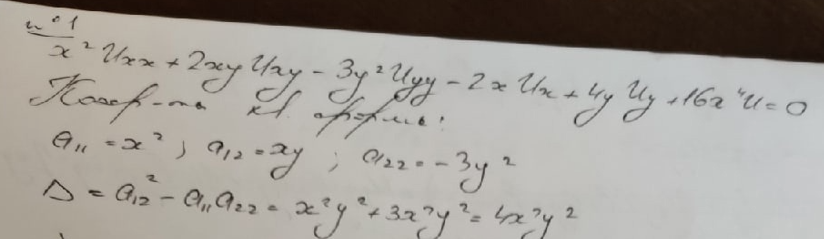 n°1
x² Uxx + 2xy Uxy - 3y² Uyy - 2x Ux + 4y Uy + 16x⁴u = 0
Коэф-ты кв. формы:
a₁₁ = x² ; a₁₂ = xy ; a₂₂ = -3y²
Δ = a₁₂² - a₁₁a₂₂ = x²y² + 3x²y² = 4x²y²